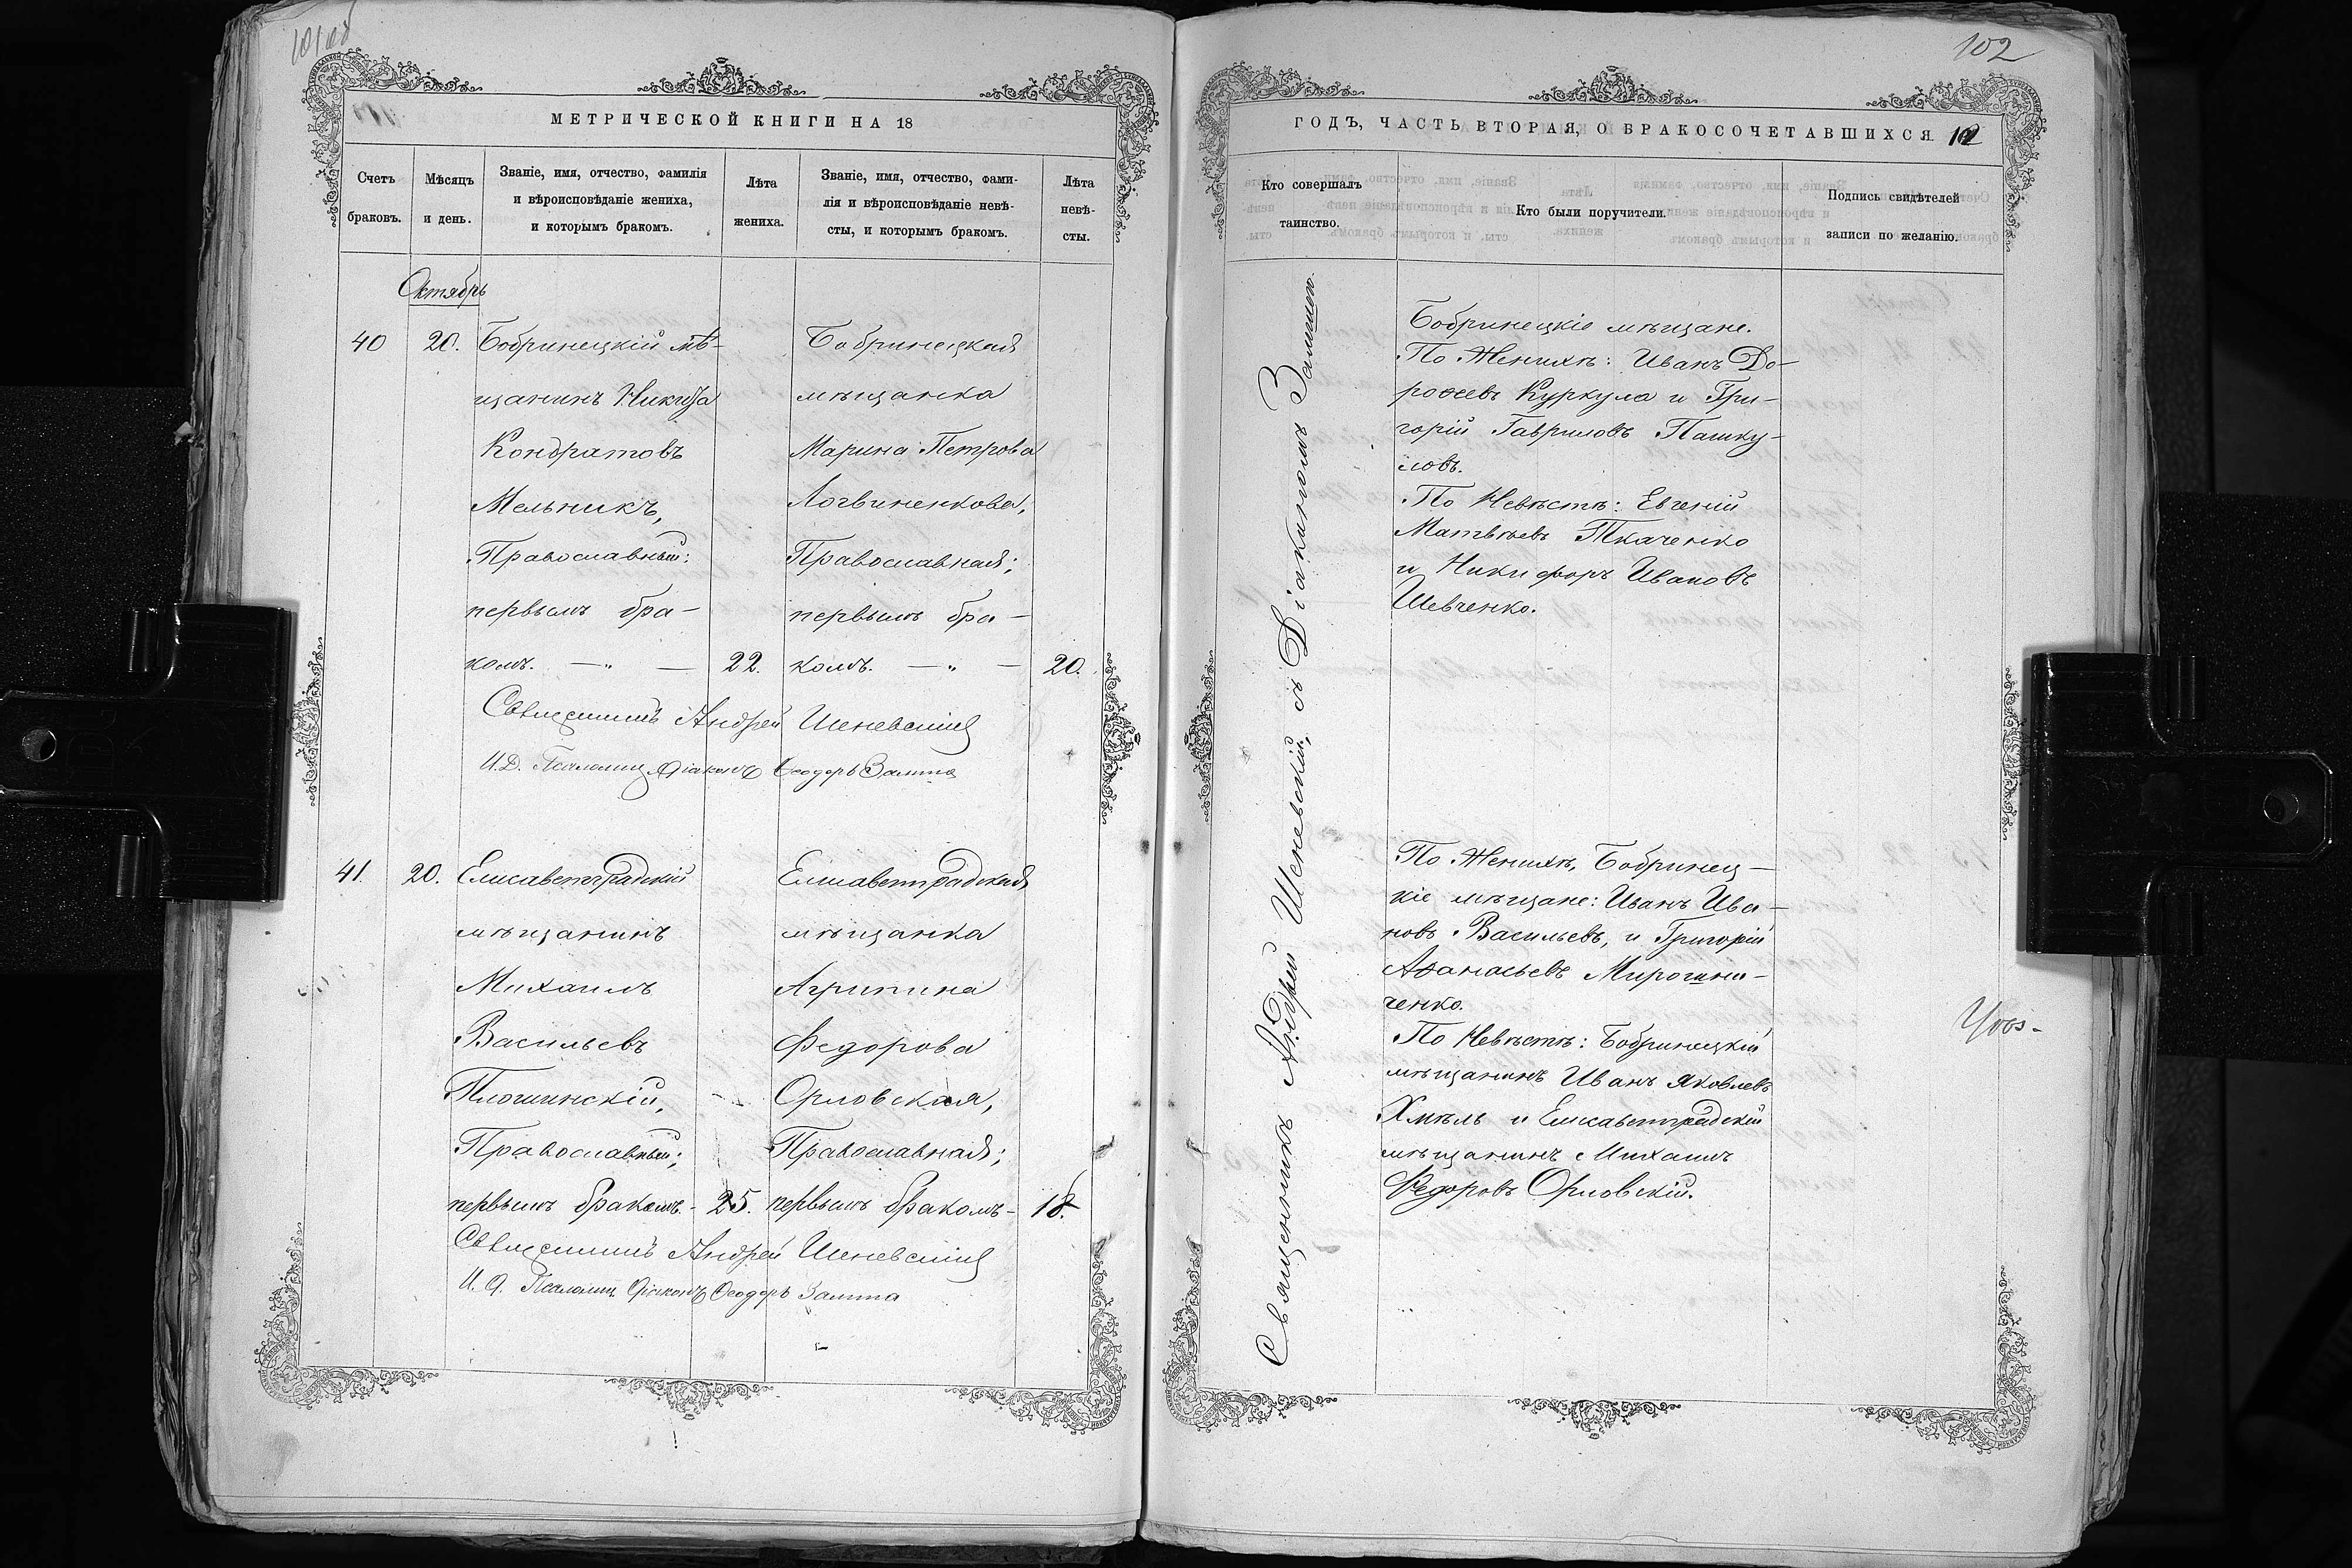 101об
МЕТРИЧЕСКОЙ КНИГИ НА 18
Счетъ браковъ.
Мѣсяцъ и день.
Званіе, имя, отчество, фамилія
и вѣроисповѣданіе жениха,
и которымъ бракомъ.
Лѣта жениха.
Званіе, имя, отчество, фами-
лія и вѣроисповѣданіе невѣ-
сты, и которымъ бракомъ.
Лѣта невѣ-
сты.
Октябрь
40
20.
Бобринецкій мѣ-
щанинъ Никита
Кондратовъ
Мельникъ,
Православный;
первымъ бра-
комъ. — „ —
22.
Бобринецкая
мѣщанка
Марина Петрова
Логвиненкова,
Православная;
первымъ бра-
комъ. — „ —
20.
Священникъ Андрей Шеневскій
И.Д. Псаломщ. Діаконъ Ѳеодоръ Замша
41.
20.
Елисаветградскій
мѣщанинъ
Михаилъ
Васильевъ
Плошинскій,
Православный;
первымъ бракомъ. -
25.
Елисаветградская
мѣщанка
Агрипина
Федорова
Орловская,
Православная;
первымъ бракомъ -
18.
Священникъ Андрей Шеневскій
И.Д. Псаломщ. Діаконъ Ѳеодоръ Замша
102
ГОДЪ, ЧАСТЬ ВТОРАЯ, О БРАКОСОЧЕТАВШИХСЯ. 102
Кто совершалъ
таинство.
Кто были поручители.
Подпись свидѣтелей
записи по желанію.
Священникъ Андрей Шеневскій, съ Діакономъ Замшею.
Бобринецкіе мѣщане.
По Женихѣ: Иванъ До-
роѳеевъ Куркула и Гри-
горій Гавриловъ Пашку-
ловъ.
По Невѣстѣ: Евгеній
Матвѣевъ Ткаченко
и Никифоръ Ивановъ
Шевченко.
По Женихѣ, Бобринец-
кіе мѣщане: Иванъ Ива-
новъ Васильевъ, и Григорій
Аѳанасьевъ Мирошни-
ченко.
По Невѣстѣ: Бобринецкій
мѣщанинъ Иванъ Яковлевъ
Хмѣль и Елисаветградскій
мѣщанинъ Михаилъ
Федоровъ Орловскій.